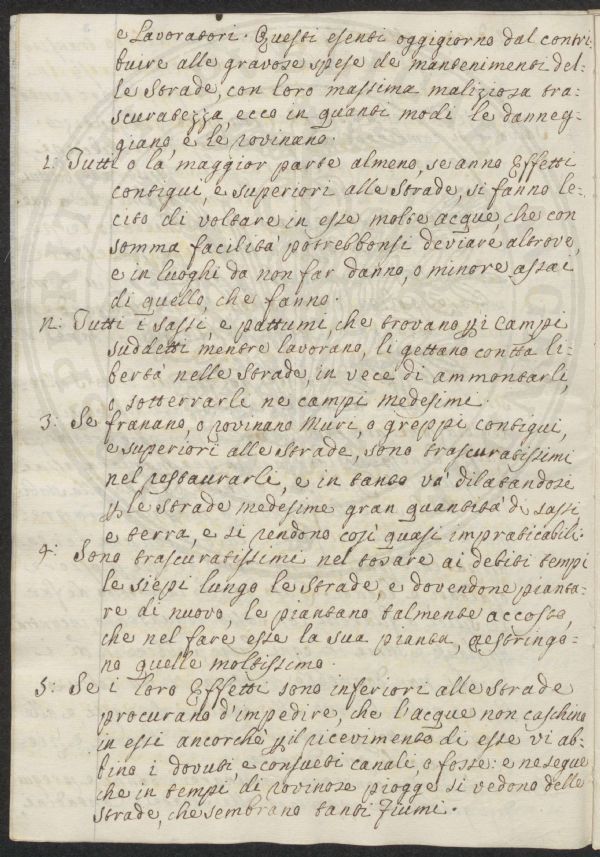 e Lavoratori. Questi esenti oggigiorno dal contri-
buire alle gravose spese de mantenimenti del-
le Strade, con loro massima maliziosa tra-
scuratezza, ecco in quanti modi le danneg-
giano, e le rovinano.
1: Tutti o la maggior parte almeno, se anno Effetti
contigui, e superiori alle strade, si fanno le-
cito di voltare in esse molte acque, che con
somma facilità potrebbonsi deviare altrove,
e in luoghi da non far danno, o minore assai
di quello, che fanno.
2: Tutti i sassi, e pattumi, che trovano p̱i Campi
suddetti mentre lavorano, li gettano con tta li-
bertà nelle strade, in vece di ammontarli,
o sotterrarli ne campi medesimi.
3: Se franano, o rovinano Muri, o greppi contigui,
e superiori alle strade, sono trascuratissimi
nel restaurarli, e in tanto và dilatandosi
p̱ le strade medesime gran quantità di sassi
e terra, e si rendono così quasi impraticabili.
4: Sono trascuratissimi nel tosare ai debiti tempi
le siepi lungo le strade, e dovendone pianta-
re di nuovo, le piantano talmente accosto,
che nel fare esse la sua pianta, restringo-
no quelle moltissimo.
5: Se i loro Effetti sono inferiori alle strade
procurano d'impedire, che l'acque non caschino
in essi ancorchè p̱ il ricevimento di esse vi ab-
bino i dovuti, e consueti canali, o fosse: e ne segue
che in tempi di rovinose piogge si vedono delle
strade, che sembrano tanti Fiumi.